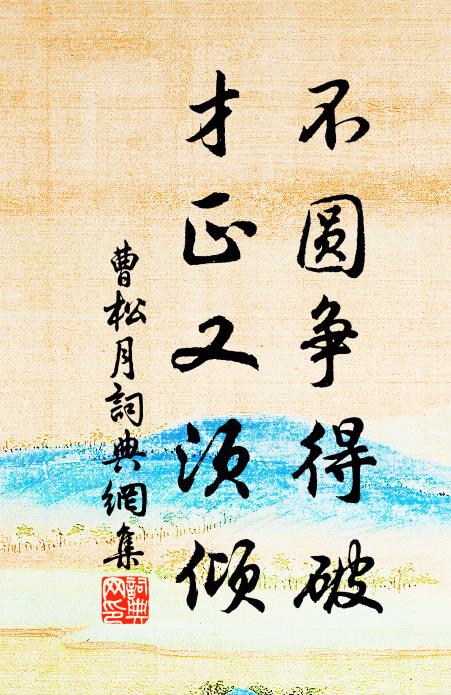 不圆争得破
才正又须倾
曹松月詞典網集
詞典